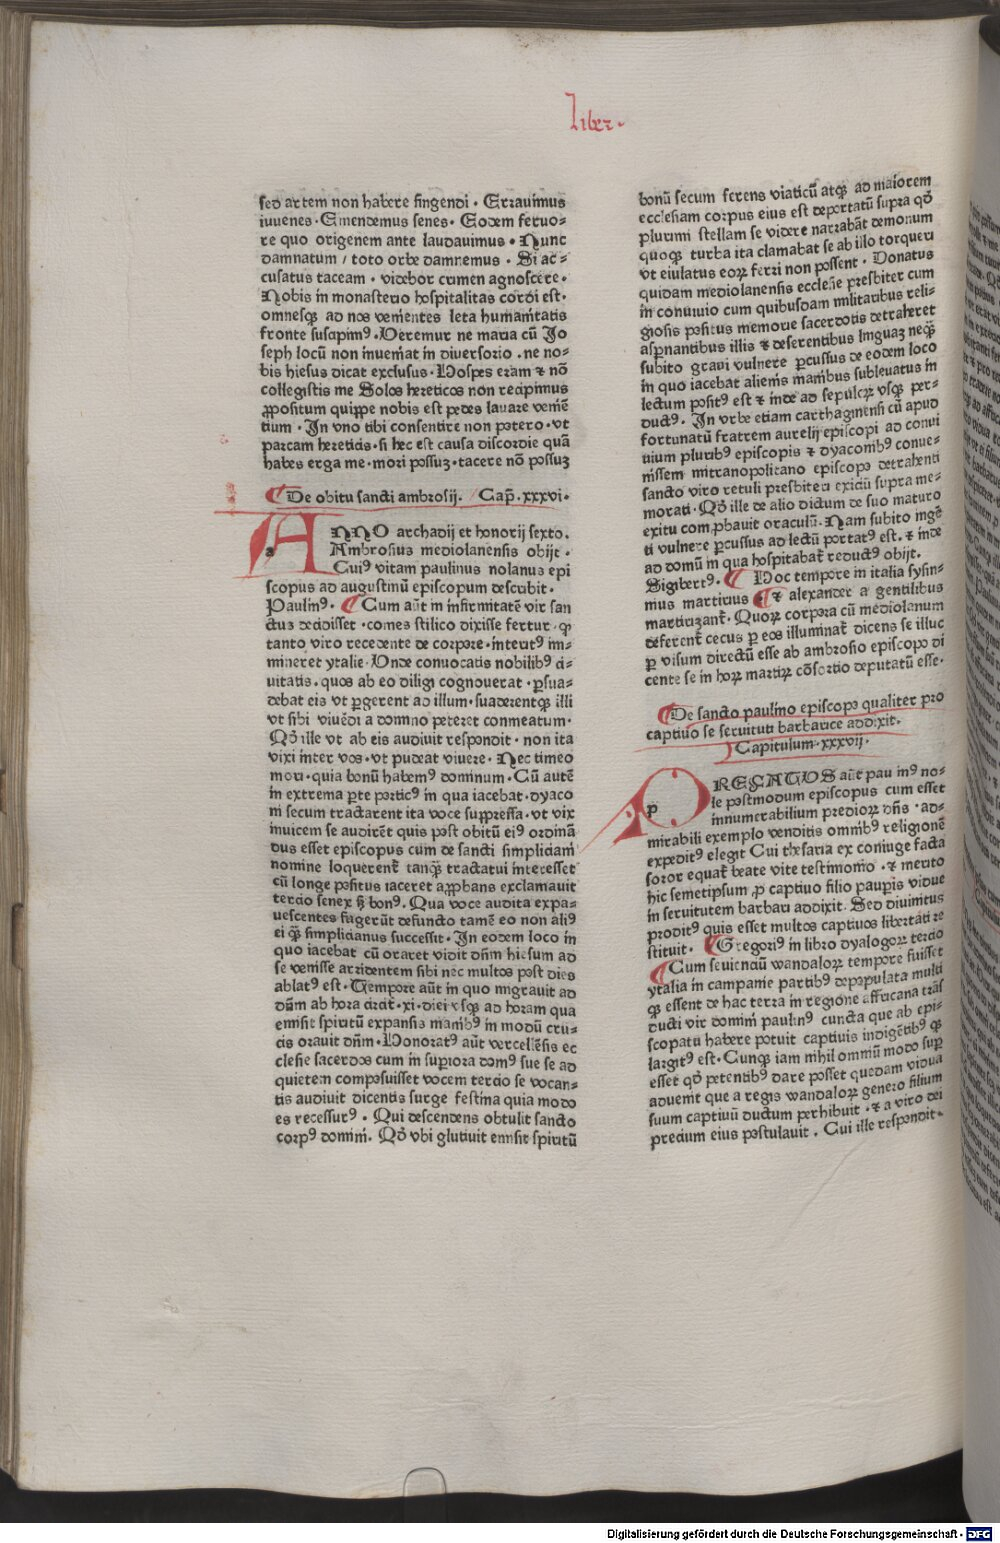 liber.
sed artem non habere fingendi . Errauimus
iuuenes . Emendemus senes . Eodem feruo⸗
re quo origenem ante laudauimus . Nunc
damnatum / toto orbe damnemus . Si ac⸗
cusatus taceam . videbor crimen agnoscere .
Nobis in monasterio hospitalitas cordi est .
omnesqꝫ ad nos venientes leta humanitatis
fronte suscipimꝰ . Veremur ne maria cū Jo
seph locū non inueniat in diuersorio . ne no⸗
bis hiesus dicat exclusus . Hospes eram ⁊ nō
collegistis me Solos hereticos non recipimus
ꝓpositum quippe nobis est pedes lauare veniē
tium . In vno tibi consentire non potero . vt
parcam hereticis . si hec est causa discordie quā
habes erga me . mori possuꝫ . tacere nō possuꝫ
De obitu sancti ambrosij . Cap̄ . xxxvi .
ANNO archadij et honorij sexto .
Ambrosius mediolanensis obijt .
Cuiꝰ vitam paulinus nolanus epi
scopus ad augustinū episcopum descubit .
Paulinꝰ . Cum aūt in infirmitatē vir san
ctus decidisset . comes stilico dixisse fertur . ꝙ
tanto viro recedente de corpore . interitꝰ im⸗
mineret ytalie . Unde conuocatis nobilibꝰ ci⸗
uitatis . quos ab eo diligi cognouerat . ꝑsua⸗
debat eis vt ꝑgerent ad illum . suaderentqꝫ illi
vt sibi viuēdi a domino peteret conmeatum .
Qd̄ ille vt ab eis audiuit respondit . non ita
vixi inter vos . vt pudeat viuere . Nec timeo
mori . quia bonū habemꝰ dominum . Cū autē
in extrema ꝑte porticꝰ in qua iacebat . dyaco
ni secum tractarent ita voce suppressa . vt vix
inuicem se audirēt quis post obitū eiꝰ ordinā
dus esset episcopus cum de sancti simpliciani
nomine loquerent̄ tanqꝫ tractatui interesset
cū longe positus iaceret aꝓbans exclamauit
tercio senex sꝫ bonꝰ . Qua voce audita expa⸗
uescentes fugerūt defuncto tamē eo non aliꝰ
ei qꝫ simplicianus successit . In eodem loco in
quo iacebat cū oraret vidit dn̄m hiesum ad
se venisse arridentem sibi nec multos post dies
ablatꝰ est . Tempore aūt in quo migrauit ad
dn̄m ab hora circit̄ . xi . diei vsqꝫ ad horam qua
emisit spiritū expansis manibꝰ in modū cru⸗
cis orauit dn̄m . Honoratꝰ aūt vercellēsis ec
clesie sacerdos cum in superiora domꝰ sue se ad
quietem composuisset vocem tercio se vocan⸗
tis audiuit dicentis surge festina quia modo
es recessurꝰ . Qui descendens obtulit sancto
corpꝰ domini . Qd̄ vbi glutiuit emisit spiritū
bonū secum ferens viaticū atqꝫ ad maiorem
ecclesiam corpus eius est deportatū supra qd̄
plurimi stellam se videre narrabāt demonum
quoqꝫ turba ita clamabat se ab illo torqueri
vt eiulatus eoꝝ ferri non possent . Donatus
quidam mediolanensis ecclesie presbiter cum
in conuiuio cum quibusdam militaribus reli⸗
giosis positus memorie sacerdotis detraheret
aspernantibus illis ⁊ deserentibus linguaꝫ neqꝫ
subito graui vulnere ꝑcussus de eodem loco
in quo iacebat alienis manibus subleuatus in
lectum positꝰ est ⁊ inde ad sepulcꝝ vsqꝫ per⸗
ductꝰ . In vrbe etiam carthaginensi cū apud
fortunatū fratrem aurelij episcopi ad conui
uium pluribꝰ episcopis ⁊ dyaconibꝰ conue⸗
nissem mitranopolitano episcopo detrahenti
sancto viro retuli presbiteri exiciū supra me⸗
morati . Qd̄ ille de alio dictum de suo maturo
exitu comꝓbauit oraculū . Nam subito ingē
ti vulnere ꝑcussus ad lectū portatꝰ est . ⁊ inde
ad domū in qua hospitabat̄ reductꝰ obijt .
Sigbertꝰ . Hoc tempore in italia sysin⸗
nius martirius ⁊ alexander a gentilibus
martirizant̄ . Quoꝝ corpora cū mediolanum
deferent̄ cecus ꝑ eos illuminat̄ dicens se illuc
ꝑ visum directū esse ab ambrosio episcopo di
cente se in hoꝝ martiꝝ cōsortio deputatū esse .
De sancto paulino episcopo qualiter pro
captiuo se seruituti barbarice addixit .
Capitulum . xxxvij .
PREFATUS aūt paulinꝰ no⸗
le postmodum episcopus cum esset
innumerabilium predioꝝ dn̄s . ad⸗
mirabili exemplo venditis omnibꝰ religionē
expeditꝰ elegit Cui thesaria ex coniuge facta
soror equat̄ beate vite testimonio . ⁊ merito
hic semetipsum ꝓ captiuo filio pauperis vidue
in seruitutem barbari addixit . Sed diuinitus
proditꝰ quis esset multos captiuos libertati re
stituit . Gregoriꝰ in libro dyalogoꝝ tercio
Cum seuiencīū wandaloꝝ tempore fuisset
ytalia in campanie partibꝰ depopulata multi
qꝫ essent de hac terra in regionē affricana trās
ducti vir domini paulinꝰ cuncta que ab epi⸗
scopatu habere potuit captiuis indigētibꝰ qꝫ
largitꝰ est . Cunqꝫ iam nihil omnīū modo suꝑ
esset qd̄ petentibꝰ dare posset quedam vidua
aduenit que a regis wandaloꝝ genero filium
suum captiuū ductum perhibuit . ⁊ a viro dei
precium eius postulauit . Cui ille respondit .
Digitalisierung gefördert durch die Deutsche Forschungsgemeinschaft - DFG